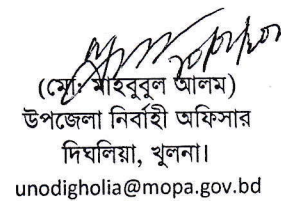 (মো: মাহবুবুল আলম)
উপজেলা নির্বাহী অফিসার
দিঘলিয়া, খুলনা।
unodigholia@mopa.gov.bd